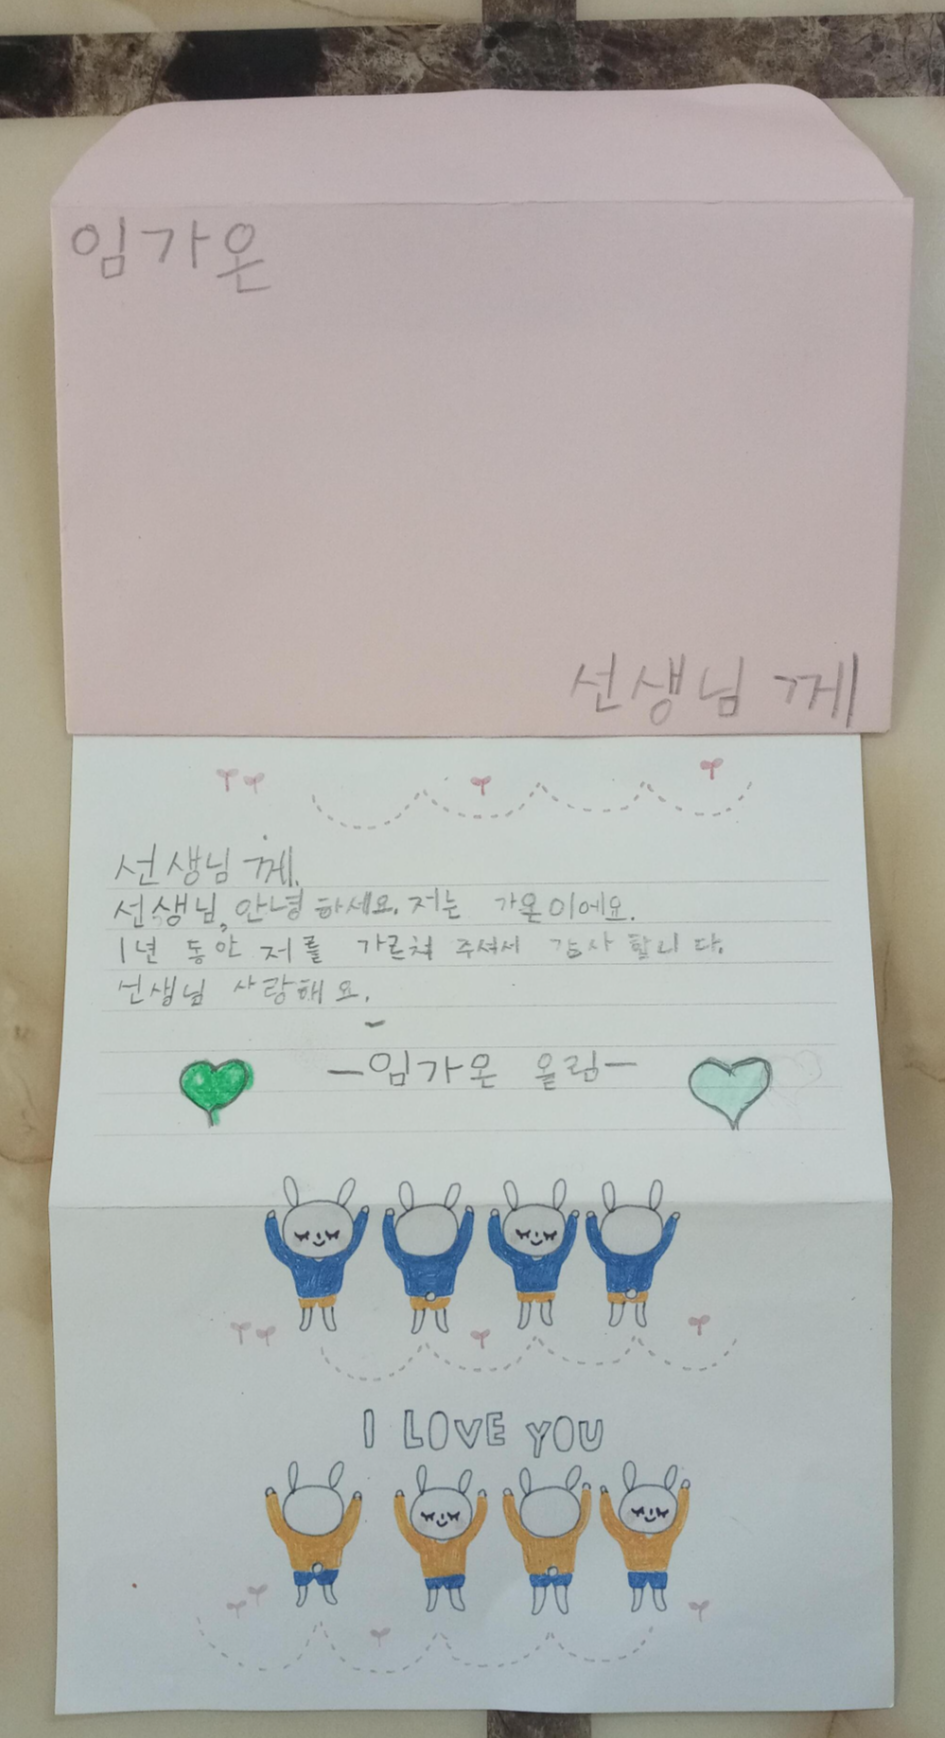 임가온
선생님 께
선생님 께.
선생님, 안녕하세요. 저는 가온이에요.
1년 동안 저를 가르쳐 주셔서 감사합니다.
선생님 사랑해요.
-임가온 올림-
I LOVE YOU